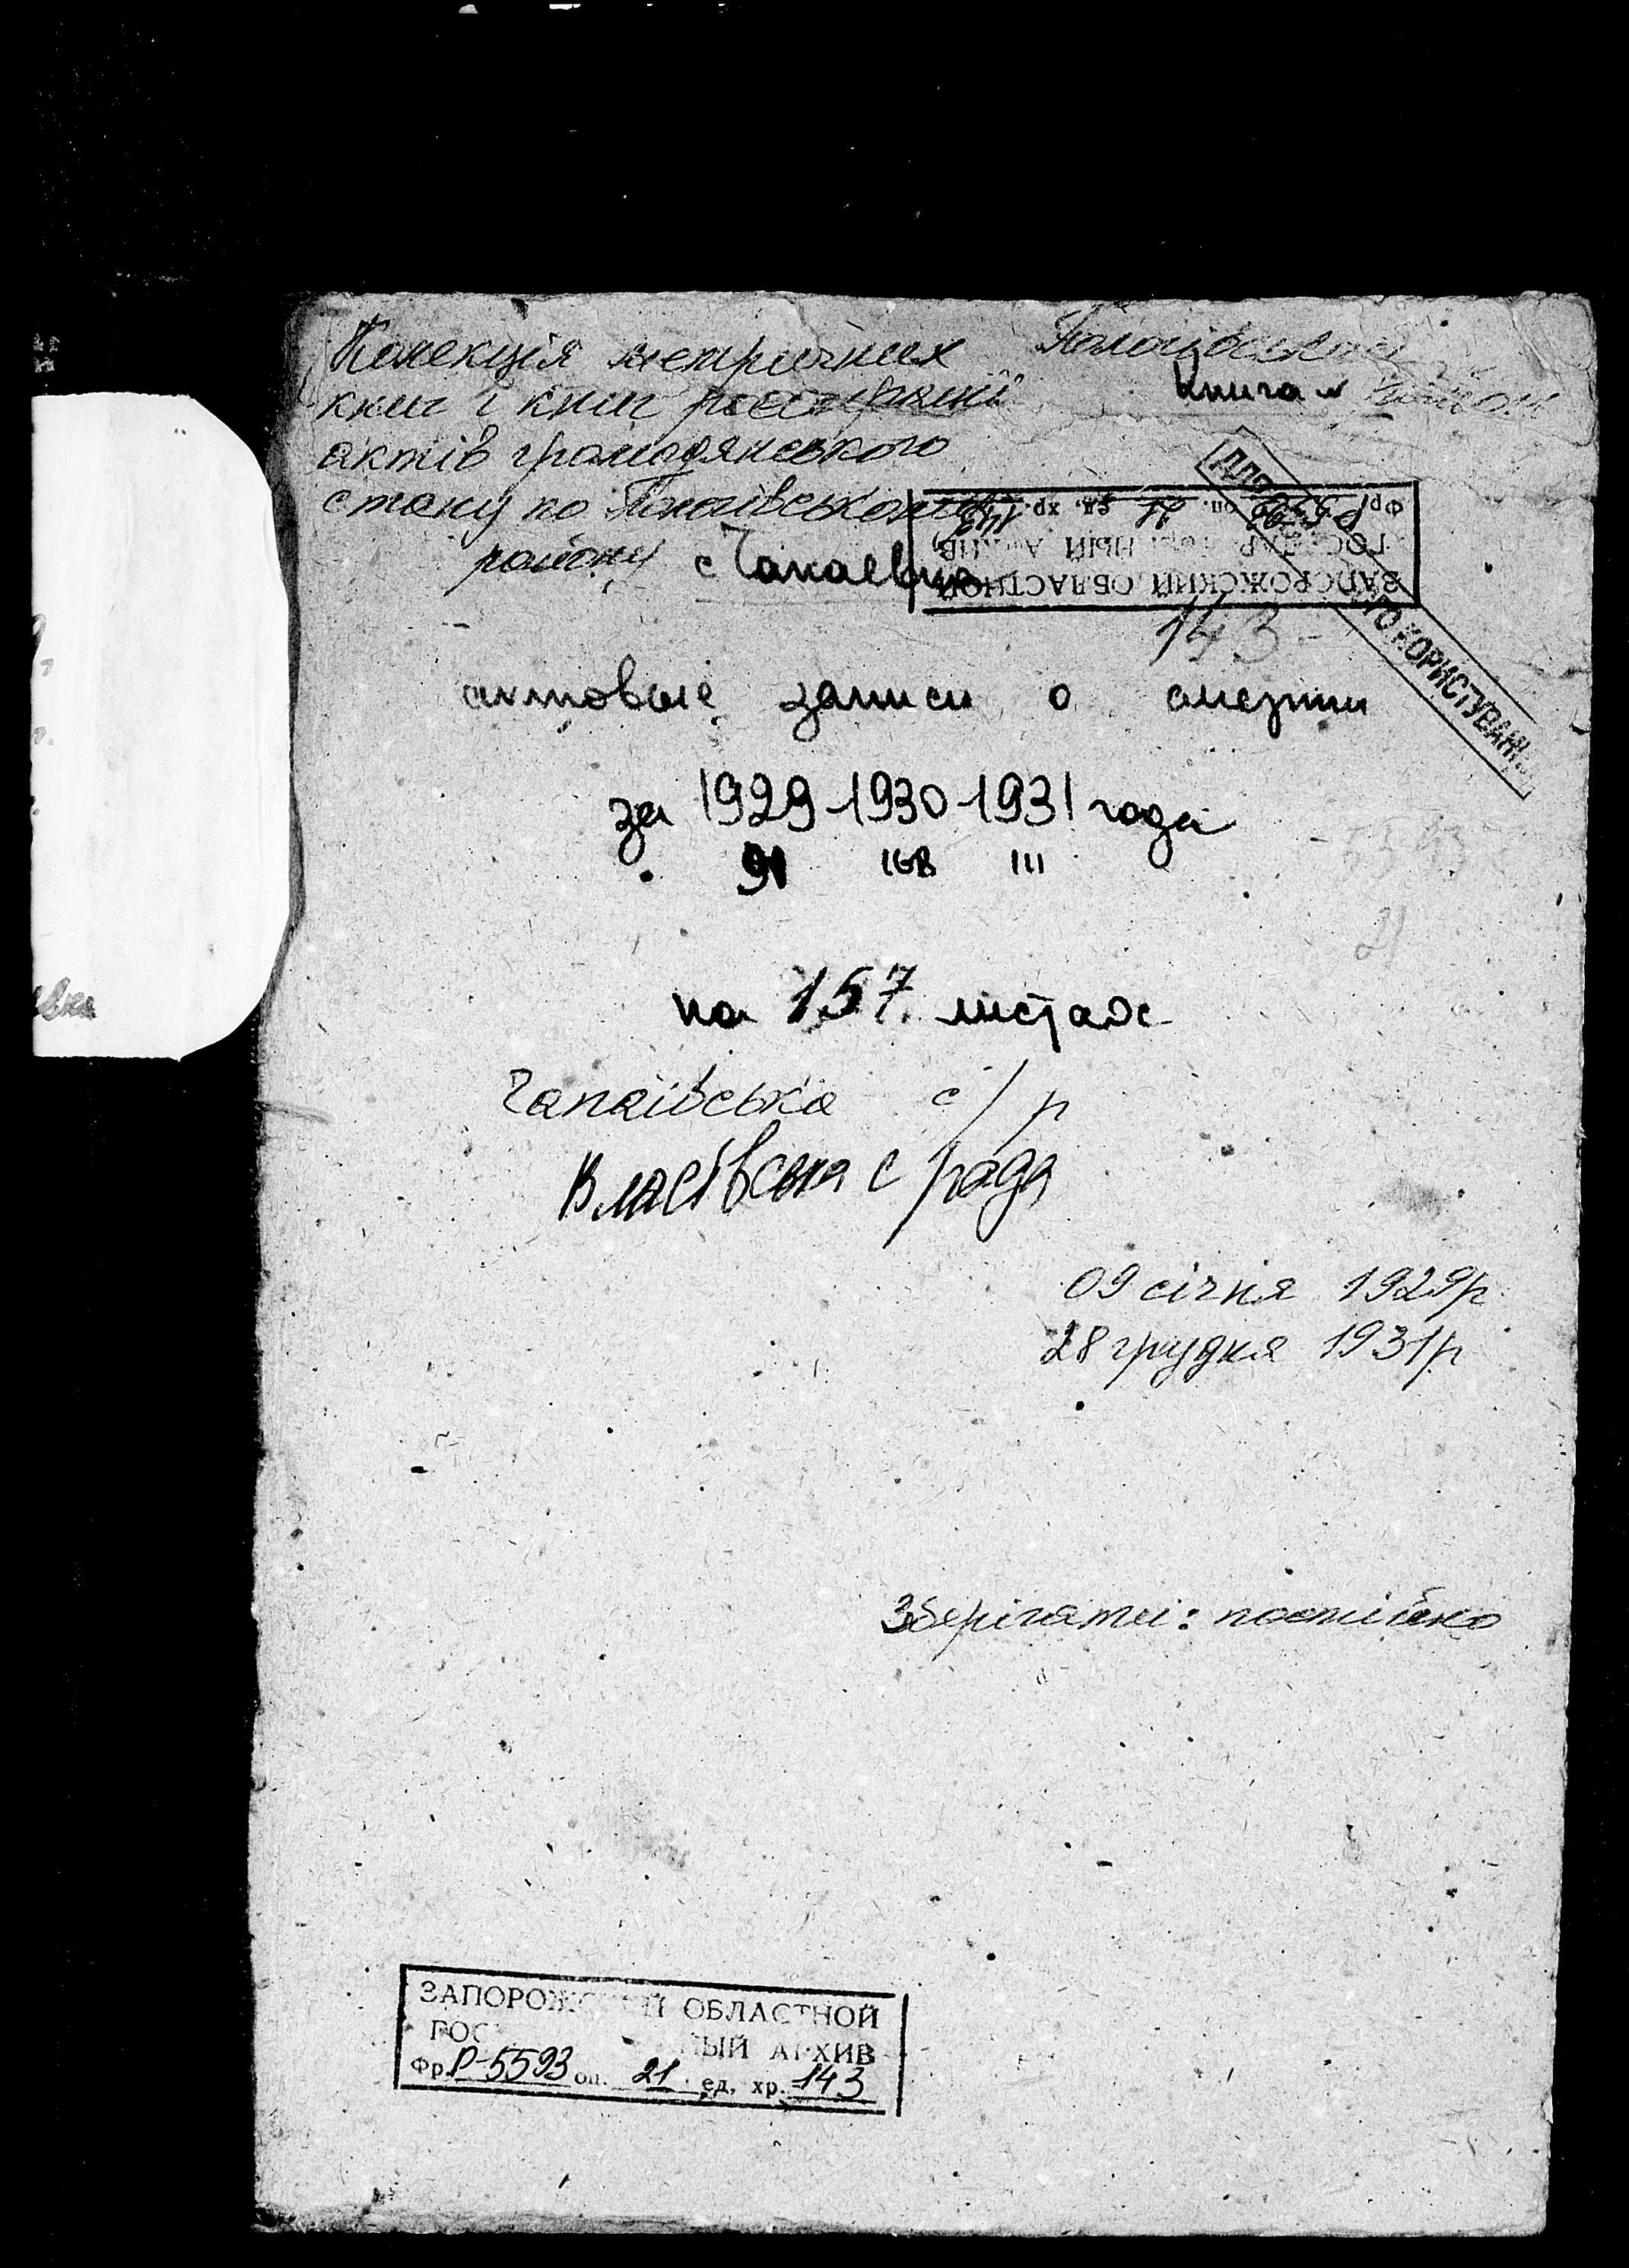 Колекція метричних
книг і книг реєстрації
актів громадянського
стану по Пологівському
району с Чапаевка
Пологівський
книга
район
Фр. Р-5593 оп. 21 ед. хр. 143
ГОСУДАР НЫЙ АРХИВ
ЗАПОРОЖСКИЙ ОБЛАСТНОЙ
ДЛЯ ГО КОРИСТУВАНН
143
актовые записи о смерти
за 1929-1930-1931 года
91 168 111
5593
21
на 157 листах
Чапаївська с/р
Власівська с/рада
09 січня 1929р
28 грудня 1931р
Зберігати: постійно
ЗАПОРОЖСКИЙ ОБЛАСТНОЙ
ГОС НЫЙ АРХИВ
Фр. Р-5593 оп. 21 ед. хр. 143